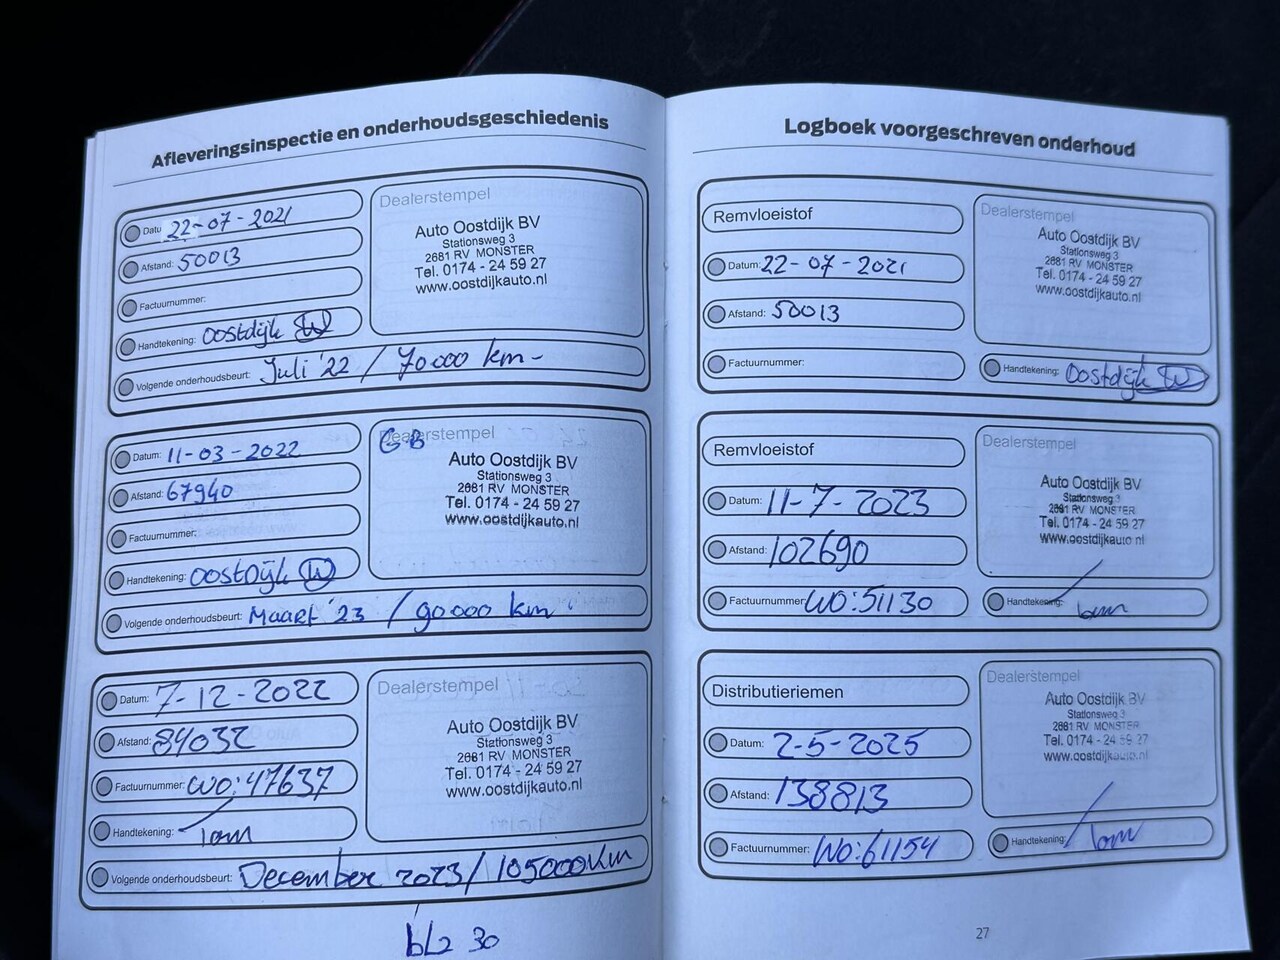 Afleveringsinspectie en onderhoudsgeschiedenis
Datu 22-07-2021
Afstand: 50013
Factuurnummer:
Handtekening: Oostdijk W
Volgende onderhoudsbeurt: Juli '22 / 70.000 km-
Dealerstempel
Auto Oostdijk BV
Stationsweg 3
2681 RV MONSTER
Tel. 0174 - 24 59 27
www.oostdijkauto.nl
Datum: 11-03-2022
Afstand: 67940
Factuurnummer:
Handtekening: Oostdijk W
Volgende onderhoudsbeurt: Maart '23 / 90.000 km
Dealerstempel
G.B
Auto Oostdijk BV
Stationsweg 3
2681 RV MONSTER
Tel. 0174 - 24 59 27
www.oostdijkauto.nl
Datum: 7-12-2022
Afstand: 84032
Factuurnummer: WO:47637
Handtekening:
Volgende onderhoudsbeurt: December 2023 / 105000 Km
Dealerstempel
Auto Oostdijk BV
Stationsweg 3
2681 RV MONSTER
Tel. 0174 - 24 59 27
www.oostdijkauto.nl
blz 30
Logboek voorgeschreven onderhoud
Remvloeistof
Datum: 22-07-2021
Afstand: 50013
Factuurnummer:
Dealerstempel
Auto Oostdijk BV
Stationsweg 3
2681 RV MONSTER
Tel. 0174 - 24 59 27
www.oostdijkauto.nl
Handtekening: Oostdijk W
Remvloeistof
Datum: 11-7-2023
Afstand: 102690
Factuurnummer: WO:51130
Dealerstempel
Auto Oostdijk BV
Stationsweg 3
2681 RV MONSTER
Tel. 0174 - 24 59 27
www.oostdijkauto.nl
Handtekening:
Distributieriemen
Datum: 2-5-2025
Afstand: 138813
Factuurnummer: WO:61154
Dealerstempel
Auto Oostdijk BV
Stationsweg 3
2681 RV MONSTER
Tel. 0174 - 24 59 27
www.oostdijkauto.nl
Handtekening:
27